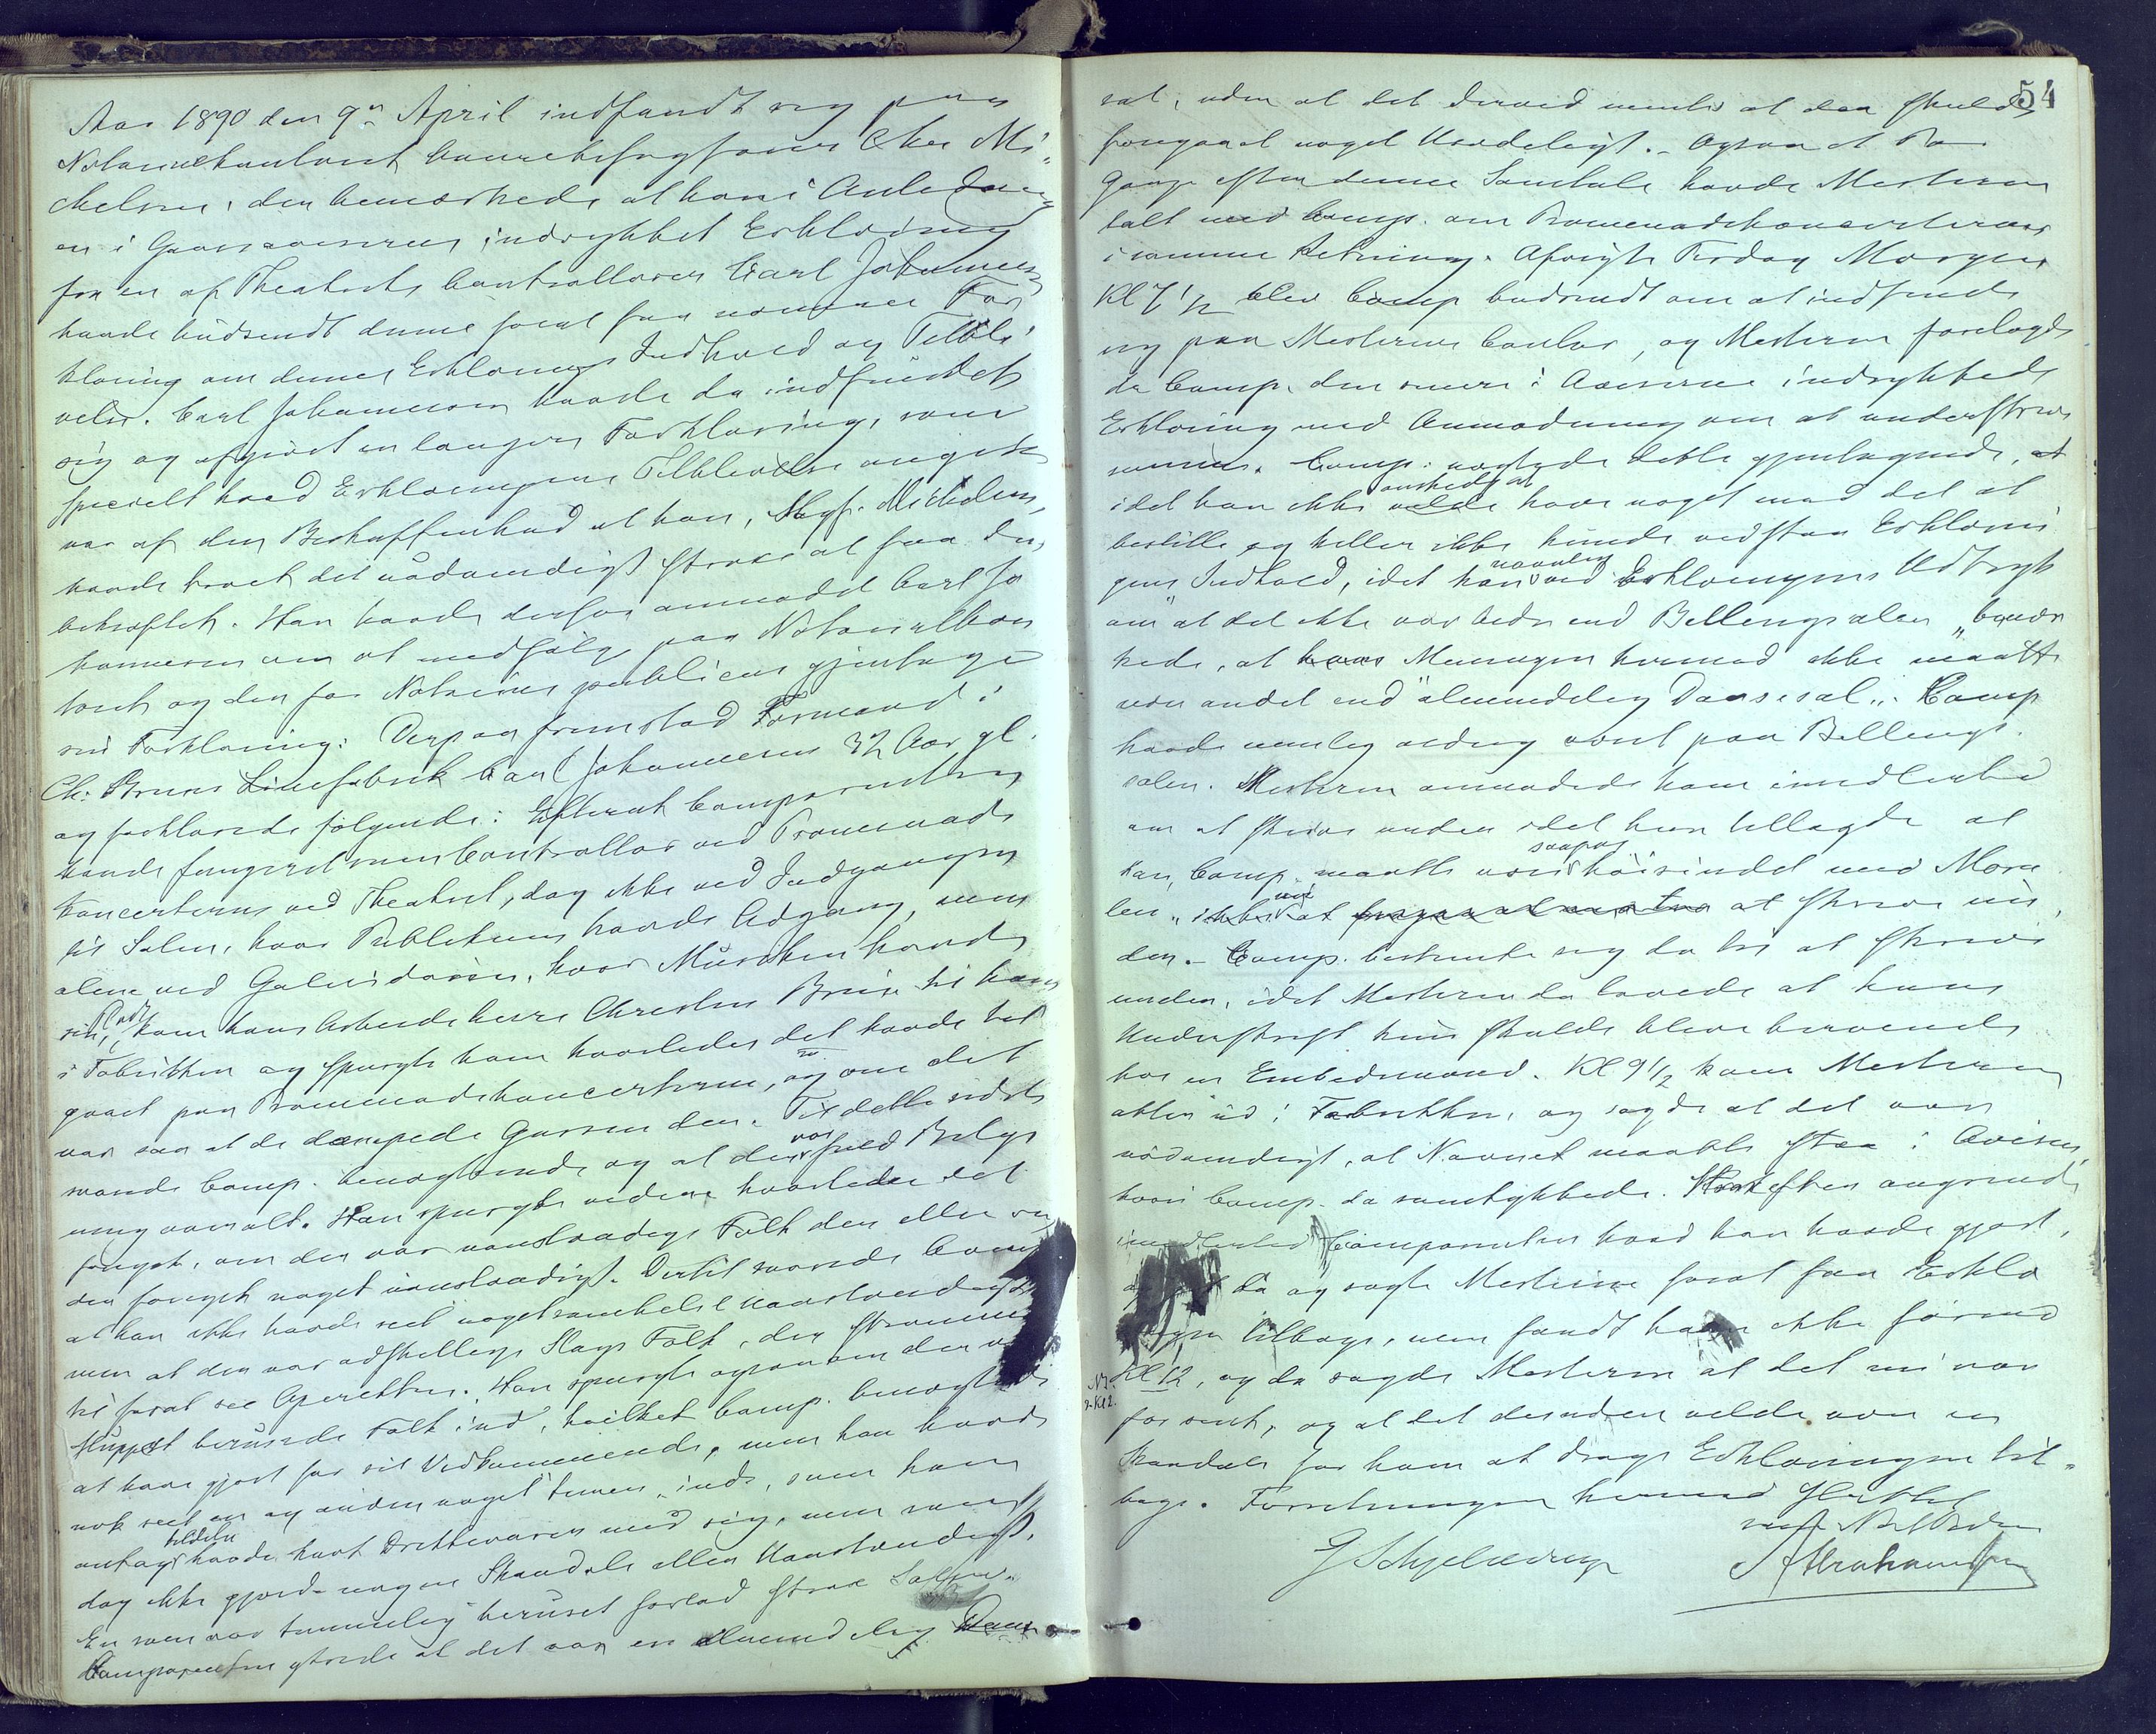 Aar 1890 den 9de April indfandt sig paa
Notariuskontoret Overretssagfører Chr. Mi-
chelsen, der bemærkede at han i Anledning
en i Gaarsaviserne indrykket Erklæring
fra en af Theatrets Controllører Carl Johannesen
havde budsendt denne forat faa nærmere For
klaring om denne Erklærings Indhold og Tilbli
velse. Carl Johannesen havde da indfundet
sig og afgivet en længere Forklaring, som
specielt hvad Erklæringens Tilblivelse angik
var af den Beskaffenhed at han, Sagf. Michelsen,
havde troet det nødvendigt strax at faa den
bekræftet. Han havde derfor anmodet Carl Jo
hannesen om at medfølge paa Notarialkon
toret og der for Notarius publicus gjentage
sin Forklaring: Derpaa fremstod Formand i
Chr. Bruns Linefabrik Carl Johannesen 32 Aar gl.
og forklarede følgende: Efterat Comparenten
havde fungeret som Controllør ved Promenade
koncerterne ved Theatret, dog ikke ved Indgangen
til Salen, hvor Publikum havde Adgang, men
alene ved Galleridøren, hvor Musiken havde
sin Plads, kom hans Arbeidsherre Christen Brun til ham
i Fabrikken og spurgte ham hvorledes det havde til
gaaet paa Promenadekoncerterne, og om det
var saa at de dæmpede Gassen der. Til dette sidste
svarede Comp. benegtende og at der var fuld Belys
ning overalt. Han spurgte videre hvorledes det
foregik, om der var uanstændige Folk der eller om
der foregik noget uanstændigt. Dertil svarede Comp
at han ikke havde seet noget somhelst uanstændigt
men at der var adskillige Slags Folk, der strømmede
til forat see Operetten. Han spurgte ogsaa om der var
sluppet berusede Folk ind, hvilket Comp. benegtede
at have gjort for sit Vedkommende, men han havde
nok seet en og anden noget "tung" inde, som han
antager tildels havde havt Drikkevarer med sig, men som
dog ikke gjorde nogen Skandale eller Uanstændigt.
En som var temmelig beruset forlod strax Salen.
Comparenten ytrede at det var en almindelig Danse
54
sal, uden at det derved mentes at der skulde
foregaaet noget Usædeligt. Ogsaa et Par
Gange efter denne Samtale havde Mesteren
talt med Comp. om Promenadekoncerterne
i samme Retning. Afvigte Tirsdag Morgen
Kl 7 1/2 blev Comp budsendt om at indfinde
sig paa Mesterens Contor, og Mesteren forelagde
da Comp. den senere i Aviserne indrykkede
Erklæring med Anmodning om at underskrive
samme. Comp. negtede dette gjentagende, at
ønskede at
idet han ikke vilde have noget med det at
bestille og heller ikke kunde vedstaa Erklærin
gens Indhold, idet han navnlig ved Erklæringens Udtryk
om "at det ikke var bedre end Bellengsalen" bemær
kede, at hans Meningen hermed ikke maatte
være andet end "almindelig Dansesal". Comp
havde nemlig aldrig været paa Bellengs
salen. Mesteren anmodede ham imidlertid
om at skrive under idet han tillagde at
han, Comp. maatte være saapas høisindet med Mora
len, at skrive un
der. Comp. bestemte sig da til at skrive
under, idet Mesteren da lovede at hans
Underskrift kun skulde blive beroende
hos en Embedsmand. Kl 9 1/2 kom Mesteren
atter ud i Fabrikken, og sagde at det var
nødvendigt, at Navnet maatte staa i Avisen,
hvori Comp. da samtykkede. Strax efter angrede
imidlertid Comparenten hvad han havde gjort,
da og søgte Mesteren forat faa Erklæ
ringen tilbage, men fandt ham ikke førend
Kl 12, og da sagde Mesteren at det nu var
for sent, og at det desuden vilde være en
Skandale for ham at drage Erklæringen til-
bage. Forretningen hermed sluttet
G Schjelderup
Abrahamsen